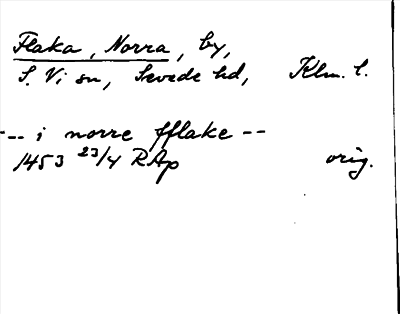 Flaka, Norra, by,
S. Vi sn, Sevede hd, Klm. l.
--- i norre fflake --
1453 23/4 RAp orig.